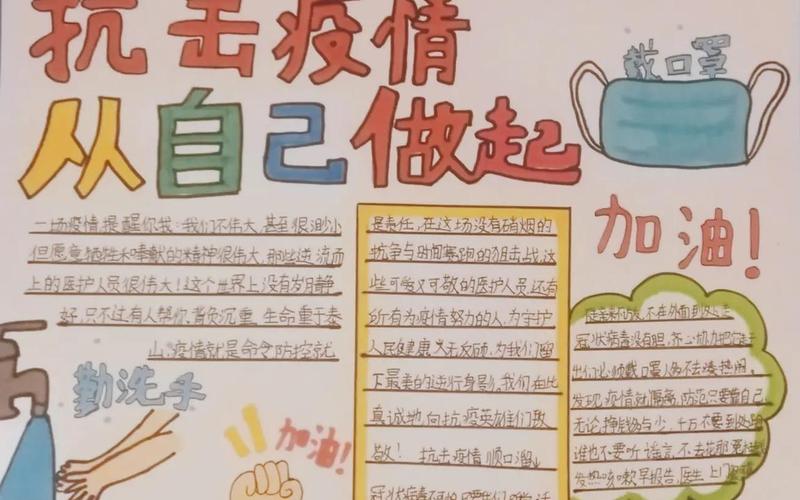 抗击疫情
从自己做起
戴口罩
加油!
一场疫情,提醒你我:我们不伟大,甚至很渺小
但愿意牺牲和奉献的精神很伟大,那些逆流而
上的医护人员很伟大!这个世界上没有岁月静
好,只不过有人帮你背负沉重 生命重于泰
山,疫情就是命令防控就
是责任,在这场没有硝烟的
抗争与时间赛跑的狙击战,这
些可爱又可敬的医护人员还有
所有为疫情努力的人,为守护
人民健康义无反顾,为我们留
下最美的逆行身影,我们在此
真诚地,向抗疫英雄们致
敬! 抗击疫情顺口溜
不在外面到处走
冠状病毒没有胆,齐心协力把它
出们必须戴口罩人多不去凑热闹.
发现疫情就 防范只要靠自己
无论挣钱多与少,千万不要到处跑
谁也不要听谣言,不去花那
发热咳嗽早报告,医生上门
勤洗手
加油!